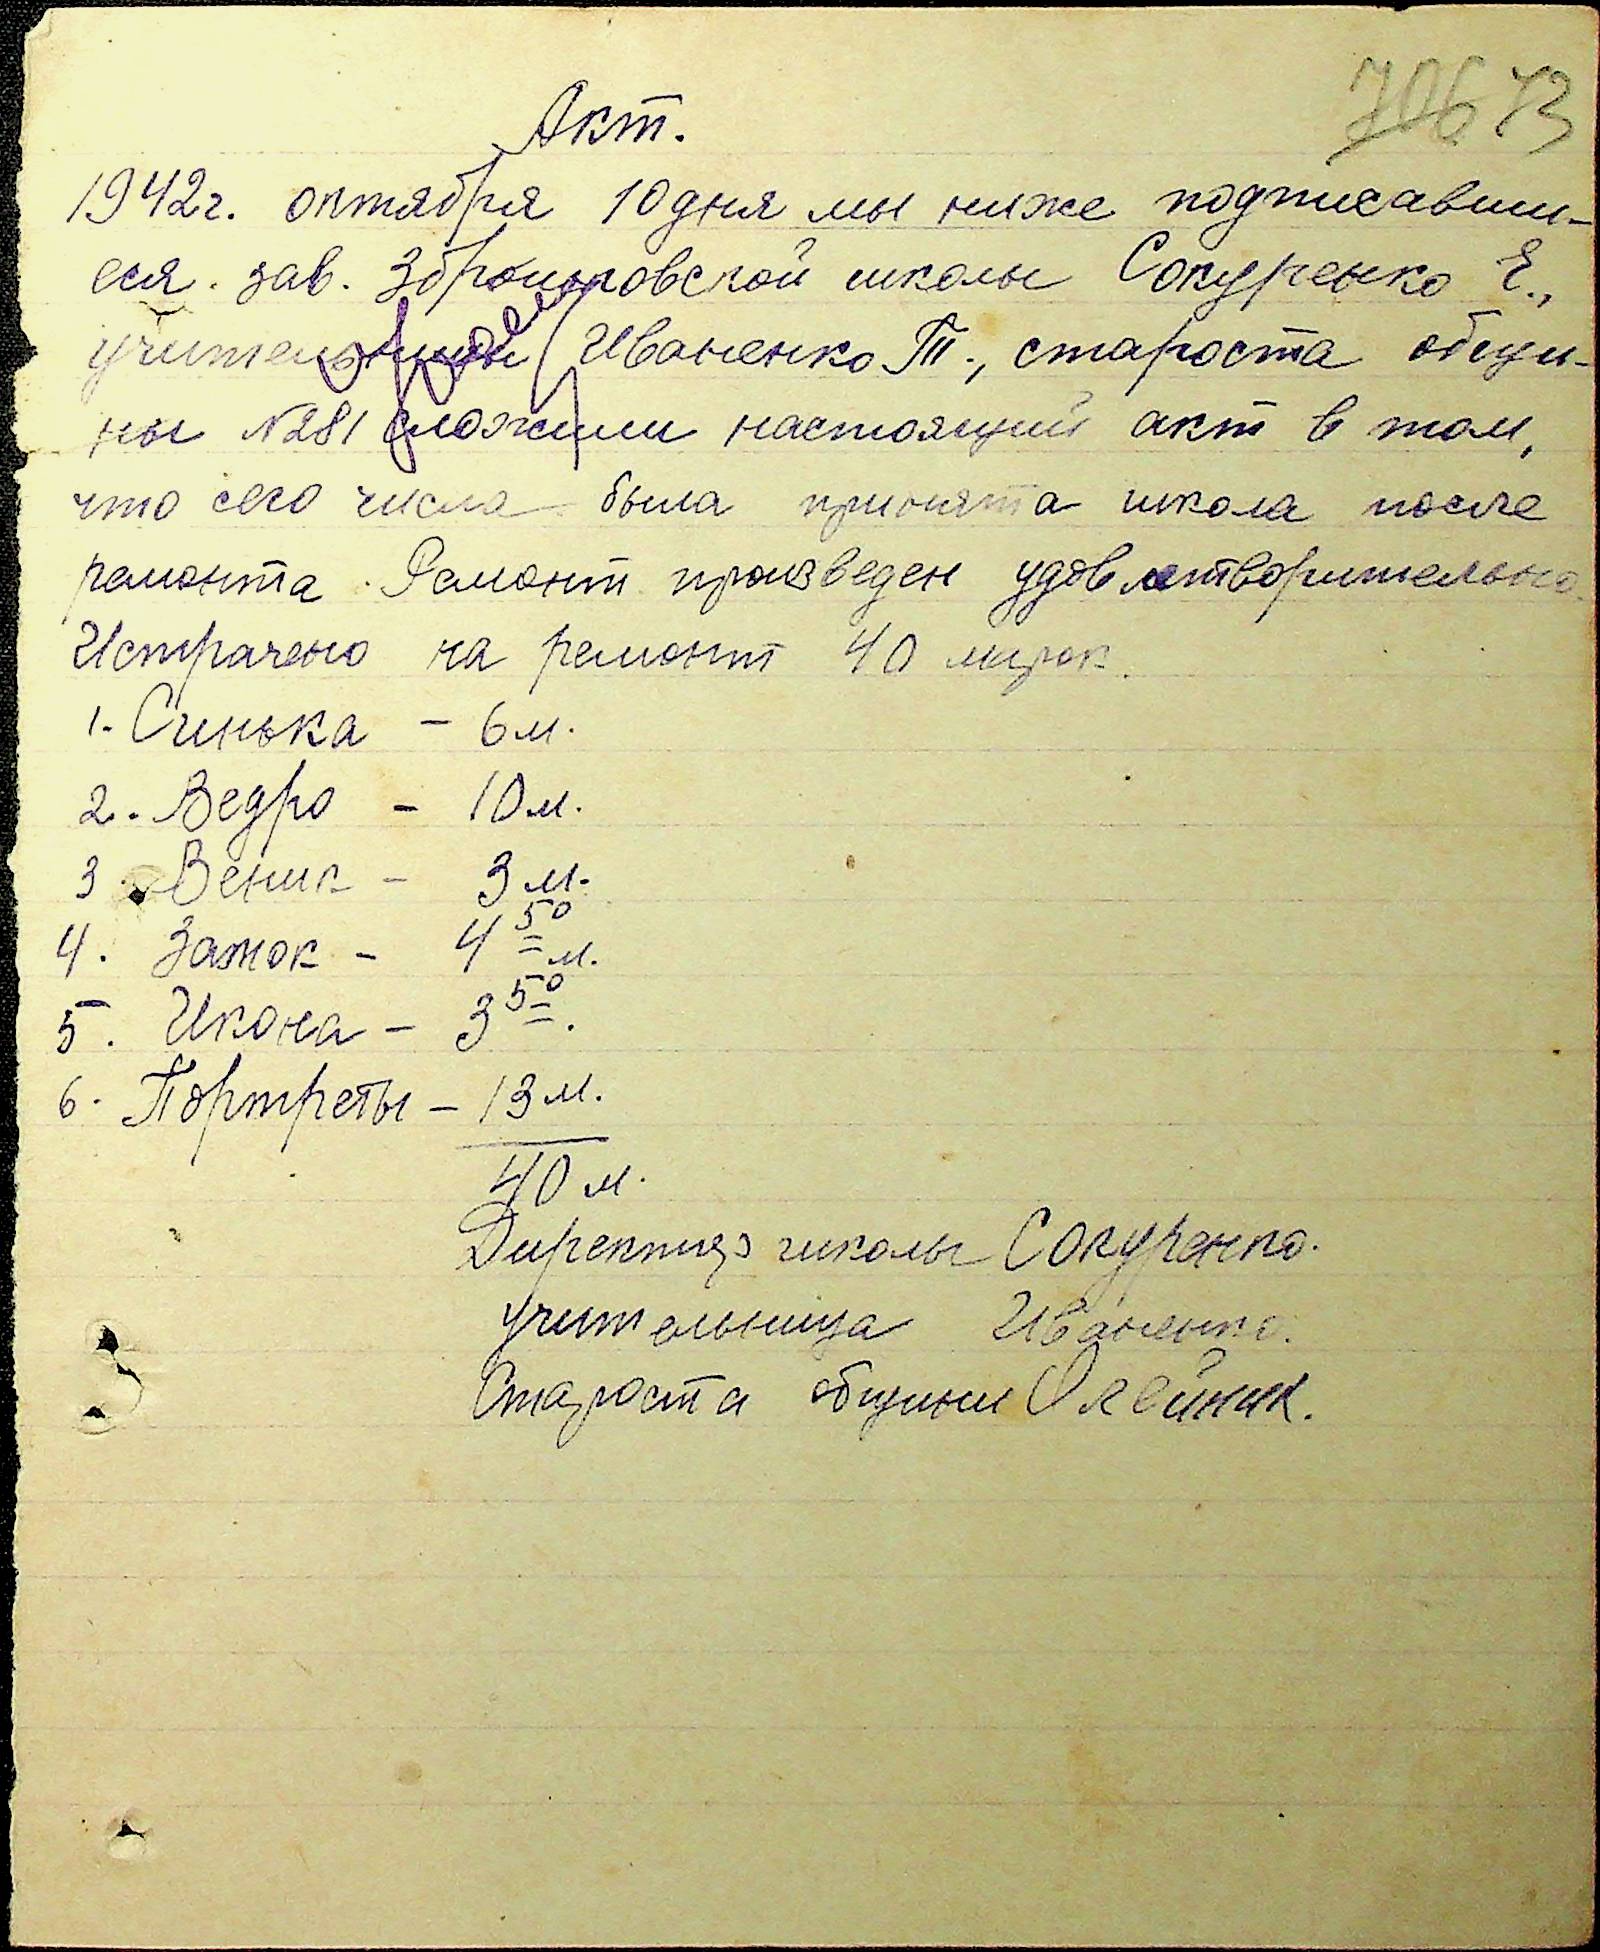 706 73
Акт.
1942г. октября 10 дня мы ниже подписавши-
еся. зав. школы Сокуренко Е.,
учительница Иваненко Т., староста общи-
ны №281 сложили настоящий акт в том,
что сего числа была принята школа после
ремонта. Ремонт произведен удовлетворительно.
Истрачено на ремонт 40 марок.
1. Синька - 6 м.
2. Ведро - 10 м.
3. Веник - 3 м.
4. Замок - 4 50 м.
5. Икона - 3 50.
6. Портреты - 13 м.
40 м.
Директор школы Сокуренко.
Учительница Иваненко.
Староста общины Олейник.